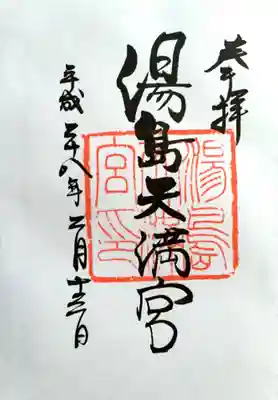 奉拝
湯島天満宮
平成二十八年二月十三日